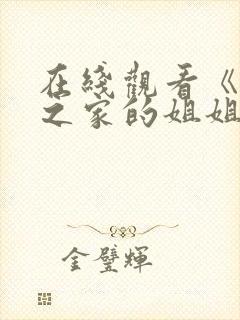 在綫觀看《
之家的姐姐
金璧輝